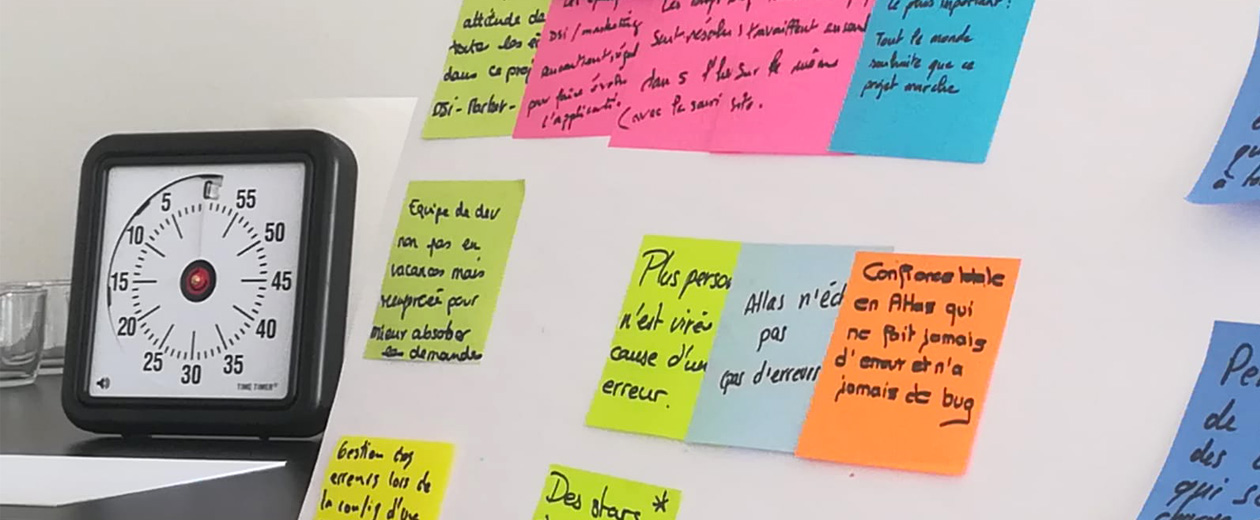 attitude de
toutes les
dans ce proj
DSI -
DSI / marketing
pour faire
l'applicatif.
sont résolus ! travaillent
dans l' sur le même
(avec le site.
le plus important !
Tout le monde
souhaite que ce
projet marche
Equipe de dev
non pas en
vacances mais
renforcée pour
mieux absorber
les demandes
Plus perso
n'est viré
cause d'un
erreur.
Atlas n'éc
pas
(pas d'erreurs
Confiance totale
en Atlas qui
ne fait jamais
d'erreur et n'a
jamais de bug
Gestion des
erreurs lors de
la config d'une
Des stars *
Pe
de
des
qui s
qu
à
5
55
10
50
15
45
20
40
25
35
30
TIME TIMER